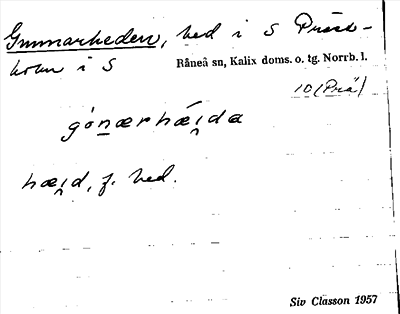 Gunnarheden, hed i S Präst-
holm i S
Råneå sn, Kalix doms. o. tg. Norrb. l.
10 (Prä)
gȯṉærhǽi̯da
hæi̯d, f. hed.
Siv Classon 1957